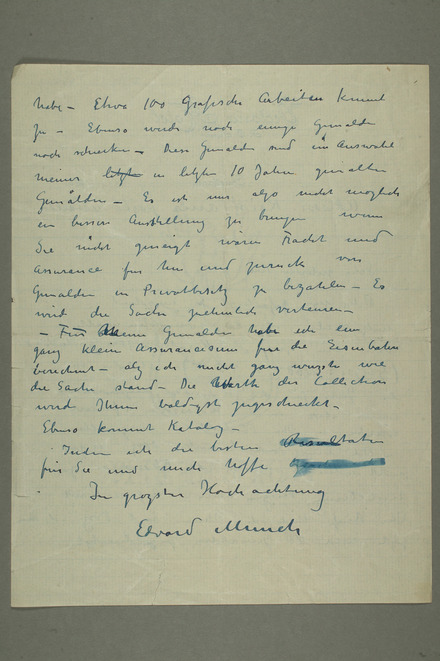 habe – Etwa 100 Grafische Arbeiten kommt
zu – Ebenso werde noch einige Gemälden
noch schicken – Diese Gemälden sind ein Auswahl
meiner letzte in letzten 10 Jahren gemalten
Gemälden – Es ist mir also nicht möglich
ein bessere Ausstellung zu bringen wenn
Sie nicht geneigt wären Fracht und
Assurance für hin und zurück von
Gemälden in Privatbesitz zu bezahlen – Es
wird die Sache ziemlich verteuern –
– Für Gemälden habe ich ein
ganz klein Assuranceium für die Eisenbahn
berechnet – als ich nicht ganz wusste wie
die Sache stand – Die Werth der Collection
wird Ihnen baldigst zugeschickt –
Ebenso kommt Katalog –
Indem ich die besten Resultaten
für Sie und mich hoffe
In grozster Hochachtung
Edvard Munch